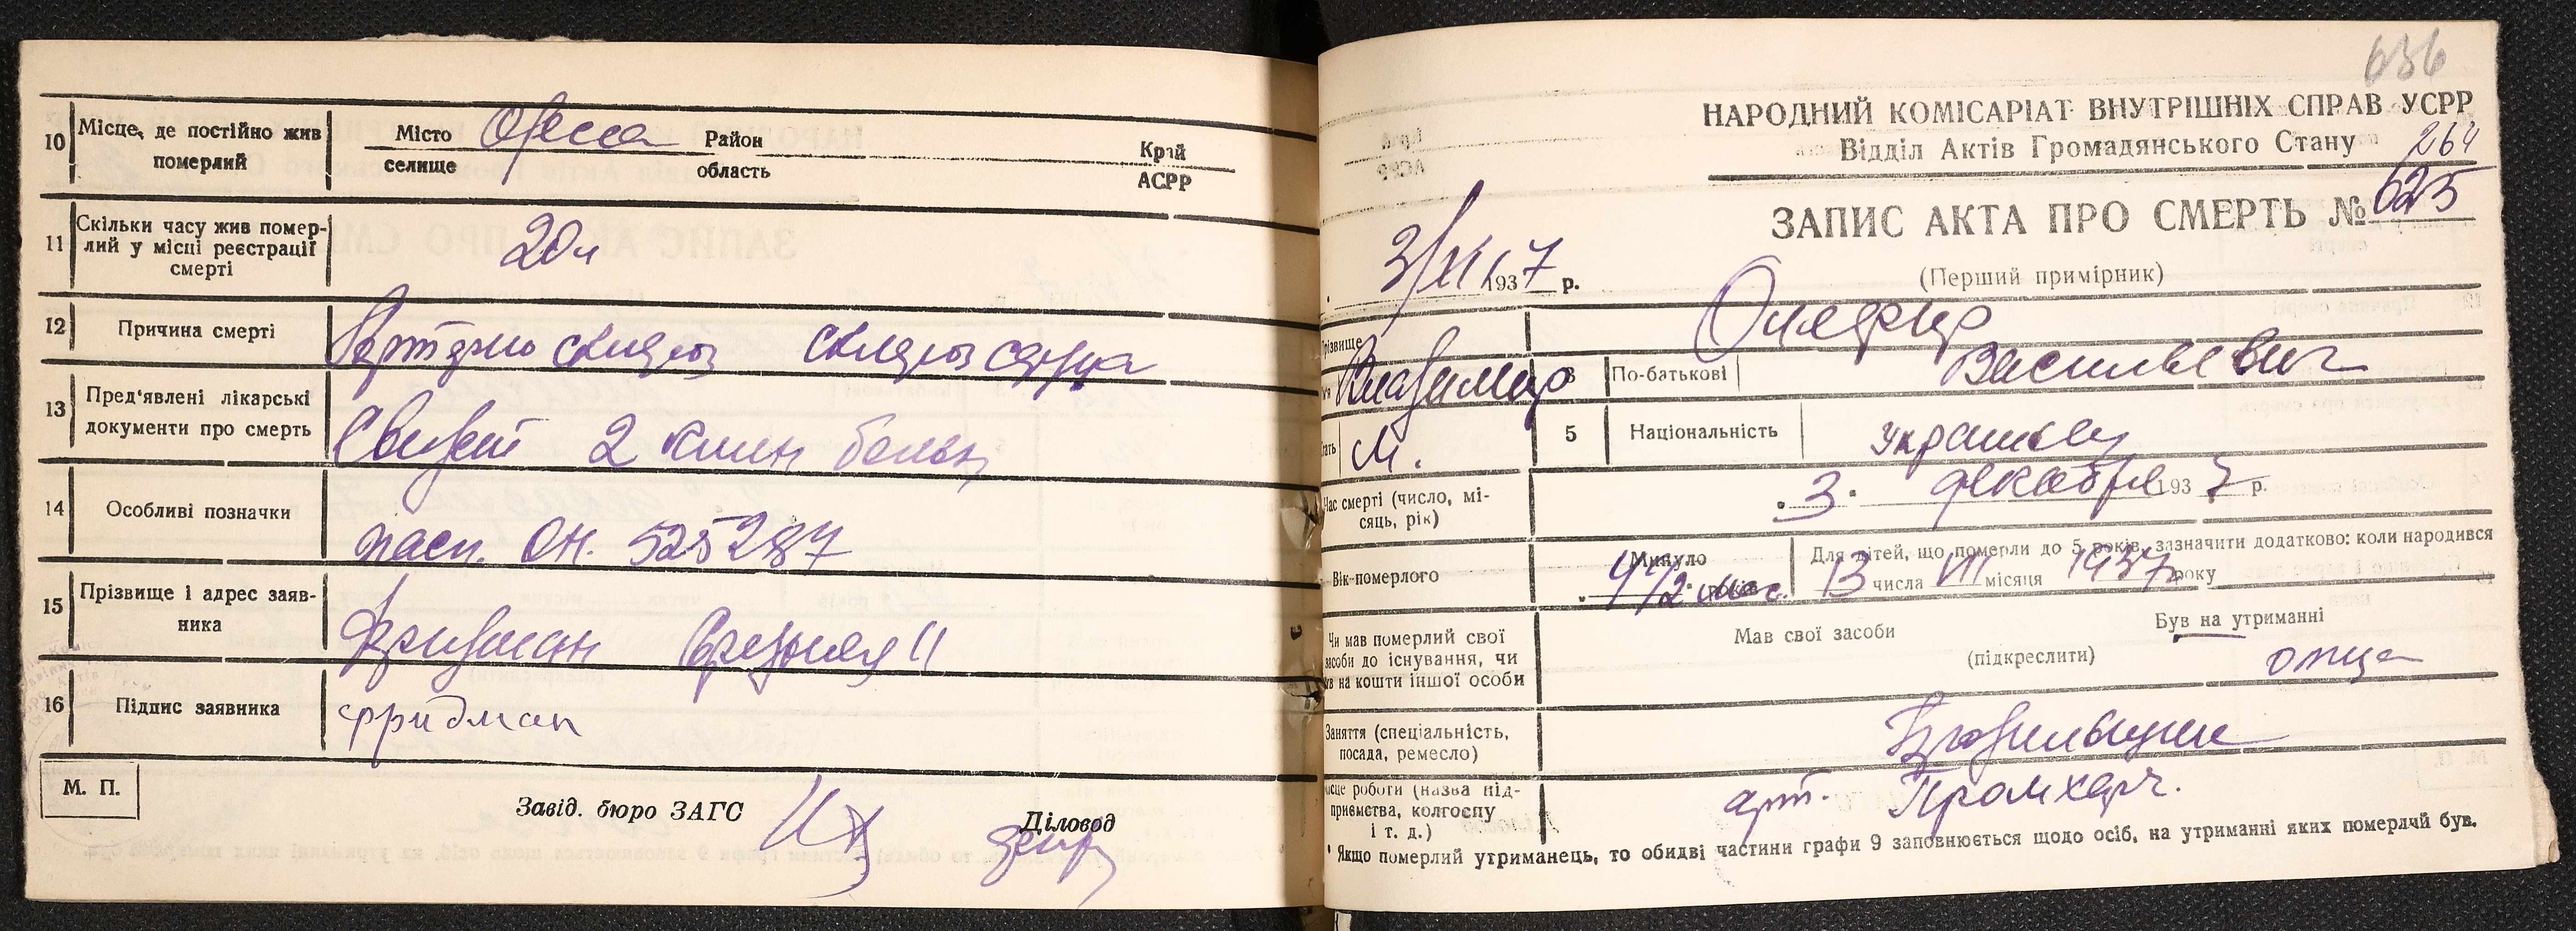 10 Місце, де постійно жив померлий
Місто Одесса Район Край
селище область АСРР
11 Скільки часу жив помер-
лий у місці реєстрації
смерті
12 Причина смерті
склероз сердца
13 Пред'явлені лікарські
документи про смерть
2 клин больн
14 Особливі позначки
пасп. ОН. 525287
15 Прізвище і адрес заяв-
ника
Фридман Средняя 11
16 Підпис заявника
Фридман
М. П.
Завід. бюро ЗАГС
Діловод
636
НАРОДНИЙ КОМІСАРІАТ ВНУТРІШНІХ СПРАВ УСРР
Відділ Актів Громадянського Стану
264
ЗАПИС АКТА ПРО СМЕРТЬ № 625
3/XII 1937 р.
(Перший примірник)
різвище
Владимир 3 По-батькові Васильевич
м. 5 Національність украинец
Час смерті (число, мі-
сяць, рік)
3 декабря 1937 р.
Вік померлого
Минуло
4 1/2 мес.
Для дітей, що померли до 5 років, зазначити додатково: коли народився
13 числа VII місяця 1937 року
Чи мав померлий свої
засоби до існування, чи
був на кошти іншої особи
Мав свої засоби Був на утриманні
(підкреслити)
отца
Заняття (спеціальність,
посада, ремесло)
Місце роботи (назва під-
приємства, колгоспу
і т. д.)
арт. Промхарч.
* Якщо померлий утриманець, то обидві частини графи 9 заповнюється щодо осіб, на утриманні яких померлий був.